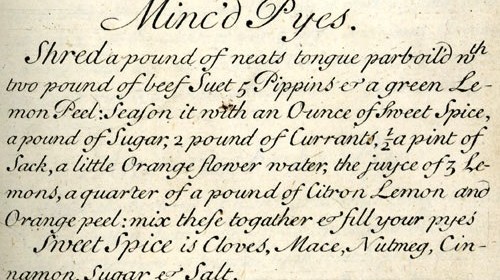 Minc'd Pyes.
Shred a pound of neats tongue parboil'd wth
two pound of beef Suet 5 Pippins & a green Le-
mon Peel: Season it with an Ounce of Sweet Spice,
a pound of Sugar, 2 pound of Currants, ½ a pint of
Sack, a little Orange flower water, the juyce of 3 Le-
mons, a quarter of a pound of Citron Lemon and
Orange peel: mix these togather & fill your pyes
Sweet Spice is Cloves, Mace, Nutmeg, Cin-
namon, Sugar & Salt.